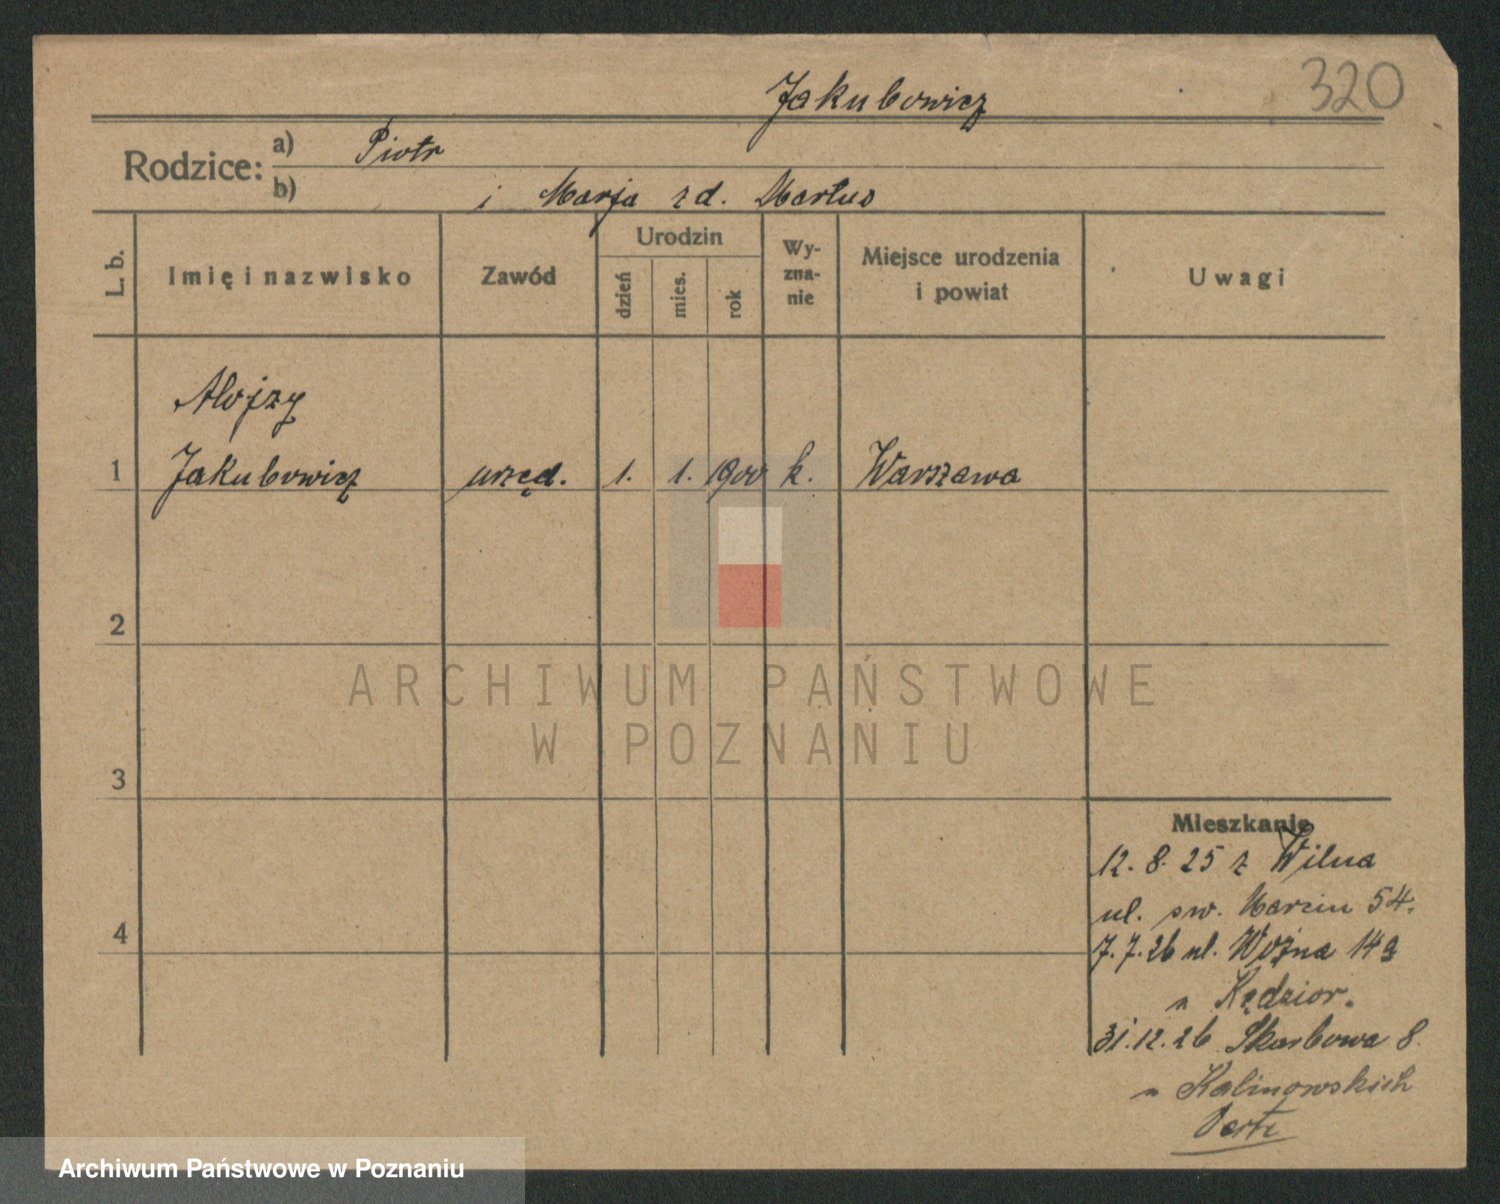 320
Jakubowicz
Rodzice:
a) Piotr
b) i Marja zd. Martus
L. b.
Imię i nazwisko
Zawód
Urodzin
dzień
mies.
rok
Wy-
zna-
nie
Miejsce urodzenia
i powiat
Uwagi
Alojzy
1 Jakubowicz urzęd. 1. 1. 1900 k. Warszawa
2
ARCHIWUM PAŃSTWOWE
W POZNANIU
3
Mieszkanie
12. 8. 25 z Wilna
ul. św. Marcin 54.
4
7.7.26 ul. Woźna 14a
u Kędzior.
31.12.26 Skarbowa 8.
u Kalinowskich
Archiwum Państwowe w Poznaniu